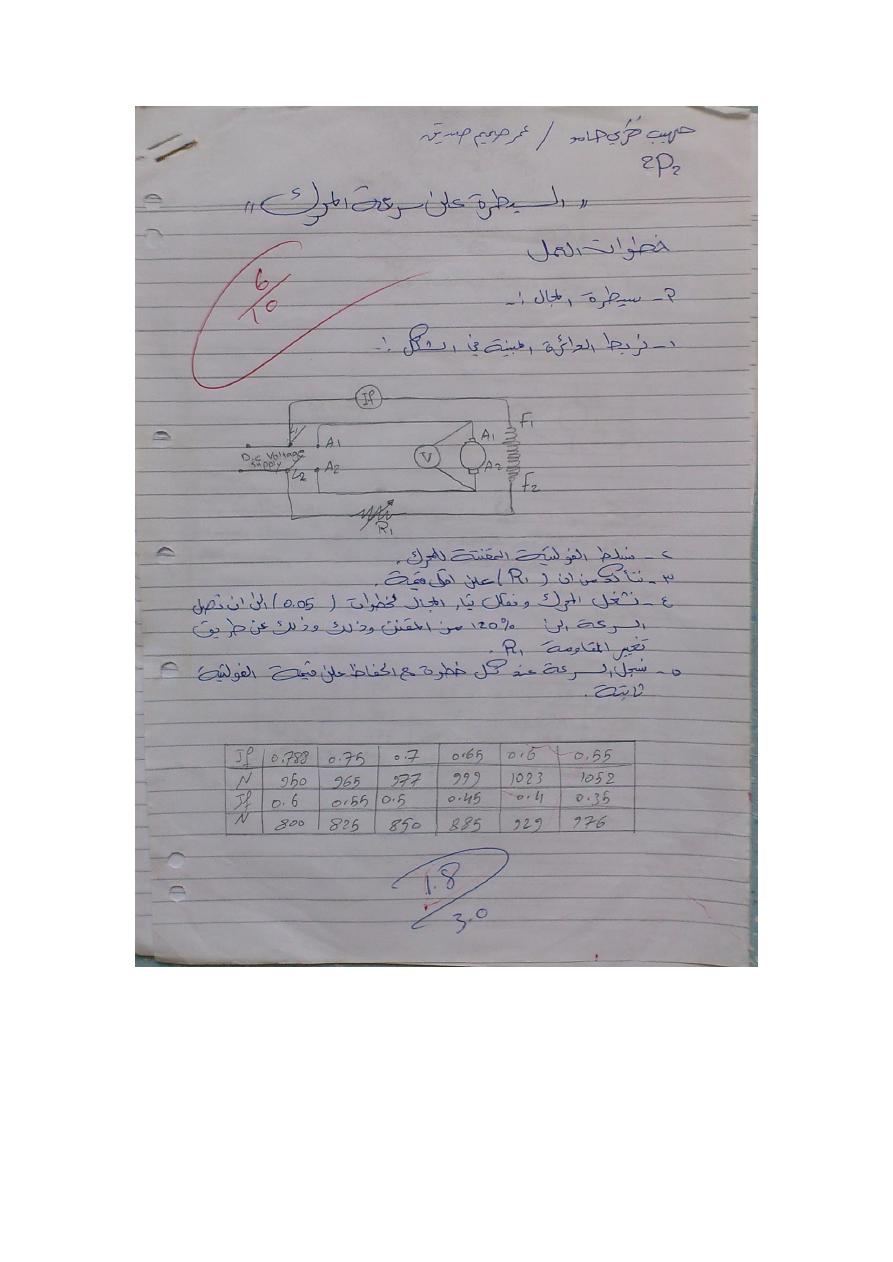 حبيب / عمر صميم صديق
2P2
"السيطرة على سرعة المحرك"
خطوات العمل
6/10
٢ـ سيطرة المجال :ـ
١ـ نربط الدائرة المبينة في الشكل :ـ
If
F1
A1
A1
D.c Voltage
supply
V
A2
L2
A2
F2
R1
٢ـ نسلط الفولتية المقننة للمحرك.
٣ـ نتأكد من ان (R1) على اقل قيمة.
٤ـ نشغل المحرك ونقلل تيار المجال بخطوات (0.05) الى ان تصل
السرعة الى 120% من المقنن وذلك وذلك عن طريق
تغير المقاومة R1.
٥ـ نسجل السرعة عند كل خطوة مع الحفاظ على قيمة الفولتية
ثابتة.
If 0.788 0.75 0.7 0.65 0.6 0.55
N 950 965 977 999 1023 1052
If 0.6 0.55 0.5 0.45 0.4 0.35
N 800 825 850 885 929 976
1.8
3.0